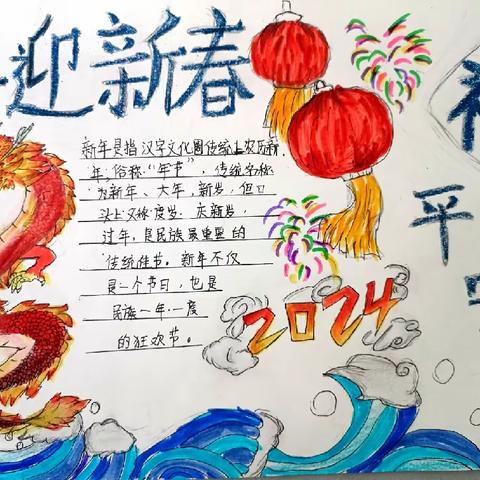 迎新春
新年是指汉字文化圈传统上农历新
年,俗称“年节”,传统字称
为新年、大年,新岁,但口
头上又称度岁、庆新岁,
过年,是民族最重要的
传统佳节。新年不仅
是一个节日,也是
民族一年一度
的狂欢节。
2024
平